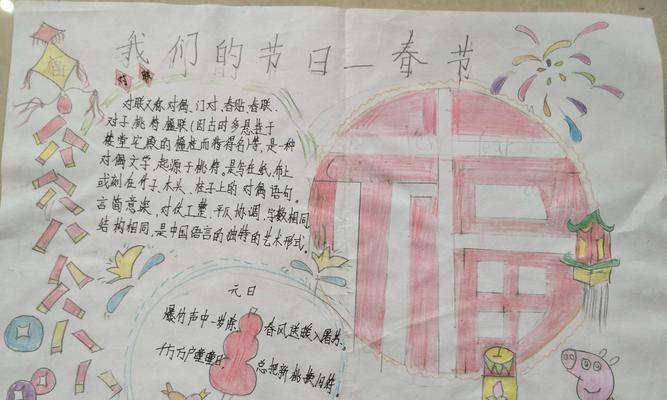 我们的节日—春节
福
对联
对联又称对偶、门对、春贴、春联、
对子、桃符、楹联(因古时多悬挂于
楼堂宅殿的楹柱而得名)等,是一种
对偶文学,起源于桃符,是写在纸、布上
或刻在竹子、木头、柱子上的对偶语句。
言简意深,对仗工整,平仄协调,字数相同,
结构相同,是中国语言的独特的艺术形式。
福
元日
爆竹声中一岁除,春风送暖入屠苏。
千门万户曈曈日,总把新桃换旧符。